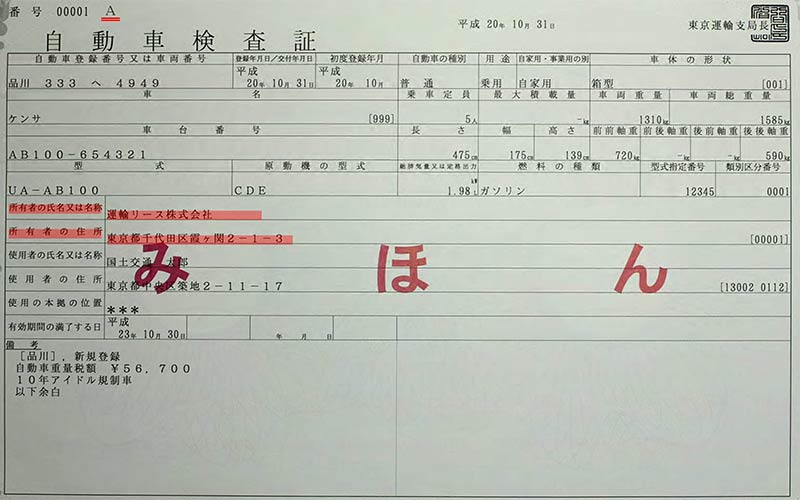 番号 00001 A
平成 20年 10月 31日
東京運輸支局長
自動車検査証
自動車登録番号又は車両番号 登録年月日/交付年月日 初度登録年月 自動車の種別 用途 自家用・事業用の別 車体の形状
品川 333 へ 4949 平成 20年 10月 31日 平成 20年 10月 普通 乗用 自家用 箱型 [001]
車名 乗車定員 最大積載量 車両重量 車両総重量
ケンサ [999] 5人 -kg 1310kg 1585kg
車台番号 長さ 幅 高さ 前前軸重 前後軸重 後前軸重 後後軸重
AB100-654321 475cm 175cm 139cm 720kg -kg -kg 590kg
型式 原動機の型式 総排気量又は定格出力 燃料の種類 型式指定番号 類別区分番号
UA-AB100 CDE kW 1.98L ガソリン 12345 0001
所有者の氏名又は名称 運輸リース株式会社
所有者の住所 東京都千代田区霞ヶ関2-1-3 [00001]
使用者の氏名又は名称 国土交通 太郎
使用者の住所 東京都中央区築地2-11-17 [13002 0112]
使用の本拠の位置 ***
有効期間の満了する日 平成 23年 10月 30日 年 月 日
みほん
備考
[品川],新規登録
自動車重量税額 ¥56,700
10年アイドル規制車
以下余白